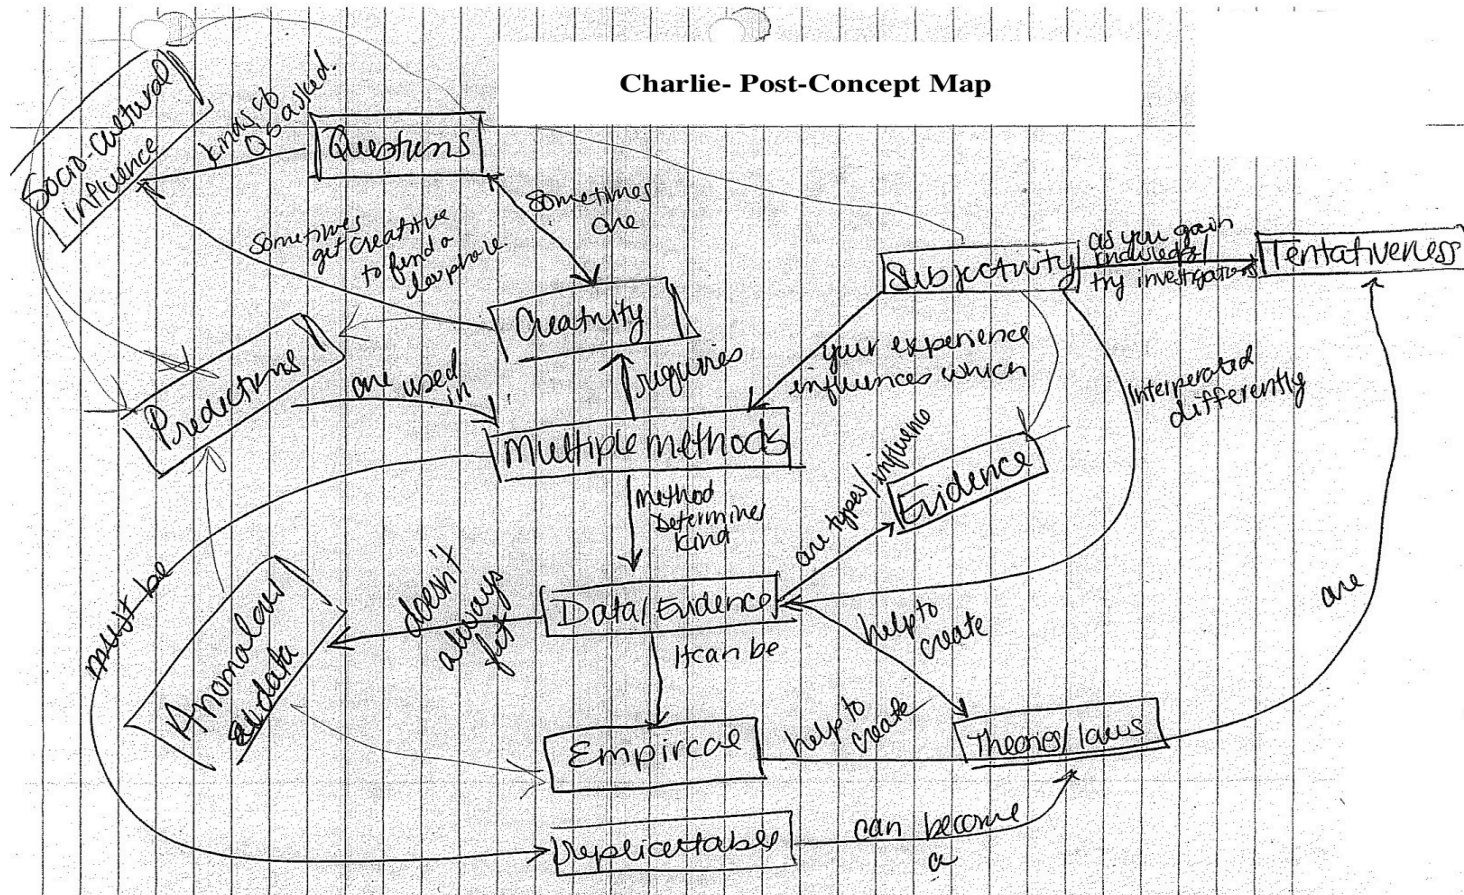 Charlie- Post-Concept Map
Socio-cultural
influence
kinds of
Qs asked.
Questions
Sometimes
are
Sometimes
get creative
to find a
loophole.
Creativity
Subjectivity
as you gain
knowledge/
try investigations
Tentativeness
Predictions
are used
in
requires
your experience
influences which
Interperated
differently
Multiple methods
Method
Determines
kind
are types/influence
Evidence
must be
Anomalous
data
doesn't
always
fit
Data/Evidence
It can be
help to
create
are
Empircal
help to
create
Theories/laws
Replicatable
can become
a